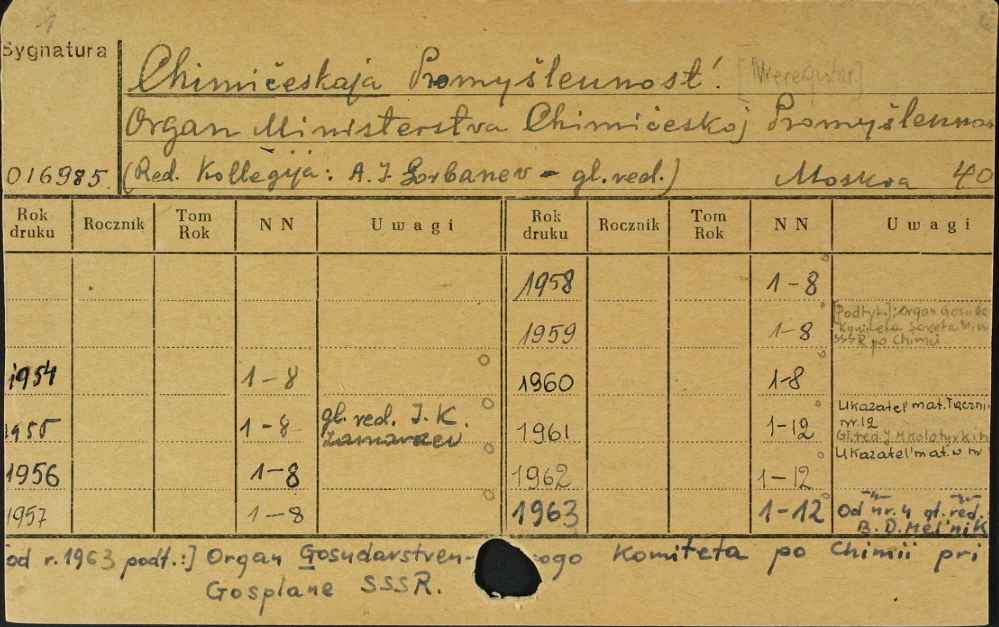 1
Sygnatura
Chimičeskaja Promyšlennost'.
Organ Ministerstva Chimičeskoj Promyšlennos
016985. (Red. Kollegija: A. I. Gorbanev - gl. red.) Moskva 40
Rok druku Rocznik Tom Rok NN Uwagi Rok druku Rocznik Tom Rok NN Uwagi
1958 1-8
1959 1-8 [Podtyt.]: Organ Gosud.
Komiteta Soveta Min
SSSR po Chimii
1954 1-8 1960 1-8
1955 1-8 gl. red. I. K.
1961 1-12 Ukazatel' mat.
nr 12
1956 1-8 1962 1-12 Ukazatel' mat. w nr
1957 1-8 1963 1-12 Od nr. 4 gl. red.
B. D. Mel'nik
od r. 1963 podt.:] Organ Gosudarstven- ogo Komiteta po Chimii pri
Gosplane SSSR.